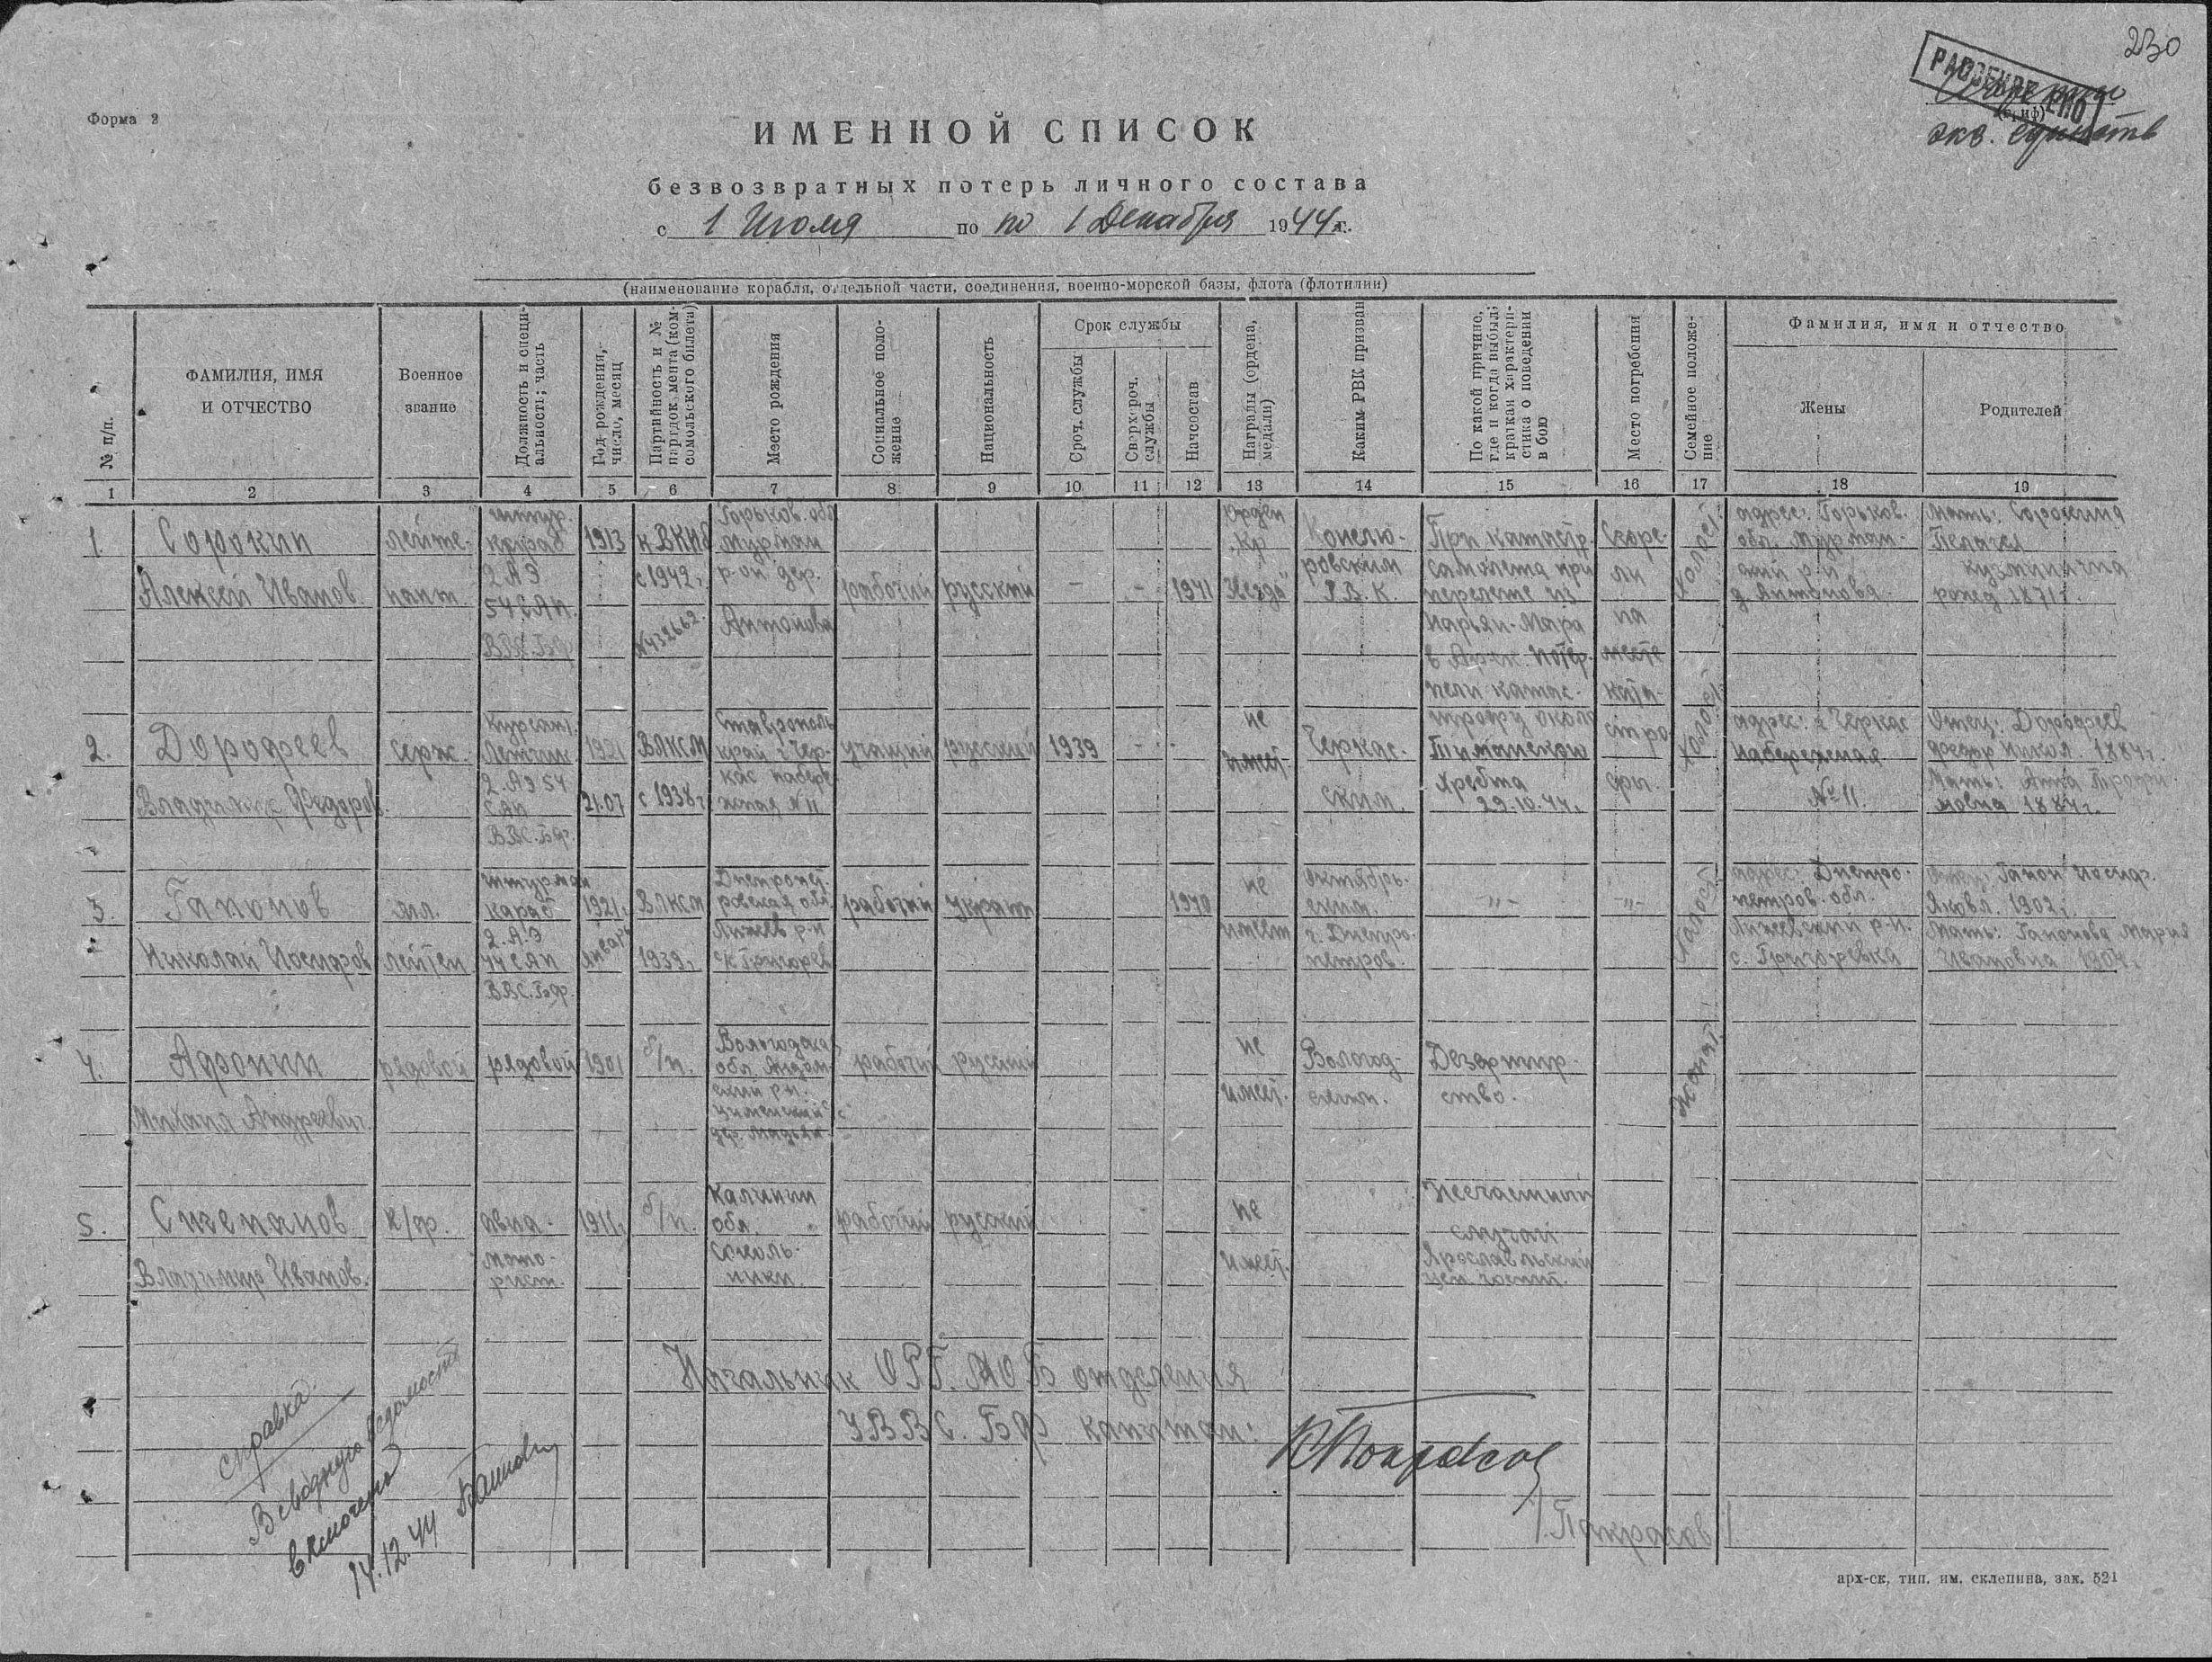 230
РАССЕКРЕЧЕНО
экз. единств
Форма 2
ИМЕННОЙ СПИСОК
безвозвратных потерь личного состава
с 1 Июля по по 1 Декабря 1944 г.
(наименование корабля, отдельной части, соединения, военно-морской базы, флота (флотилии)
№ п/п.
ФАМИЛИЯ, ИМЯ
И ОТЧЕСТВО
Военное
звание
Должность и специ-
альность; часть
Год рождения,
число, месяц
Партийность и №
партдокумента (ком-
сомольского билета)
Место рождения
Социальное поло-
жение
Национальность
Срок службы
Сроч. службы
Сверхсроч.
службы
Начсостав
Награды (ордена,
медали)
Каким РВК призван
По какой причине,
где и когда выбыл;
краткая характери-
стика о поведении
в бою
Место погребения
Семейное положе-
ние
Фамилия, имя и отчество
Жены
Родителей
1 2 3 4 5 6 7 8 9 10 11 12 13 14 15 16 17 18 19
1.
Сорокин
Алексей Иванов.
лейте-
нант.
штур.
кораб
2 АЭ
54 САП.
ВВС. Бф
1913
к ВКПб
с 1942 г.
Горьков. обл
Мурман
р-он дер.
Антонова
рабочий
русский
— - 1941
Орден
"Кр
Звезда"
ровским
Р.В.К.
При катастр.
самолета при
перелете из
Нарьян-Мара
в Арх-к. потер-
пели катас-
трофу около
Тиманского
хребта
29.10.44 г.
Сгоре-
ли
на
месте
ката-
стро-
фы.
Холост
адрес: Горьков.
обл. Мурман-
ский р-н
д Антонова
Мать: Сорокина
Пелагея
Кузминична
рожд 1871 г.
2.
Дорофеев
Владимир Федоров.
серж.
Курсант.
Летчик
2. АЭ 54
САП
ВВС. Бф.
1921
21.07
ВЛКСМ
с 1938 г
Ставрополь
край г Чер-
кас набере
жная № 11
учащий
русский
1939 - -
не
имеет.
Черкас-
ским.
Холост
адрес: г Черкас
набережная
№ 11.
Отец: Дорофеев
Федор Никол. 1884 г.
Мать: Анна Трофи
мовна 1884 г.
3.
Гапонов
Николай Иосифов
мл.
лейтен
штурман
кораб
2. АЭ
44 САП
ВВС. Бф.
1921 г.
Январь
ВЛКСМ
1939 г
Днепропет
ровская обл
рабочий
украин
1940
не
имеет
октябрь-
ским.
г. Днепро-
петров.
-"-
-"-
Холост
адрес: Днепро-
петров. обл.
с. Григоревка
Отец: Гапон Иосиф.
Яковл. 1902 г.
Мать: Гапонова Мария
Ивановна 1904 г.
4.
Афонин
Михаил Андреевич
рядовой
рядовой
1901
б/п.
Вологодская
рабочий
русский
не
имеет.
Вологод-
ским.
Дезертир-
ство.
Женат
5.
Степанов
Владимир Иванов.
к/ф.
авиа-
мото-
рист.
1911 г
б/п.
Калинин
обл.
Соколь-
ники
рабочий
русский
не
имеет.
Несчастный
случай
Ярославльский
Начальник ОРГ. МОБ отделения
УВВС. Бф капитан:
/. Покрасов /.
справка
В сводную ведомость
включено
14.12.44
арх-ск, тип. им. склепина, зак. 521